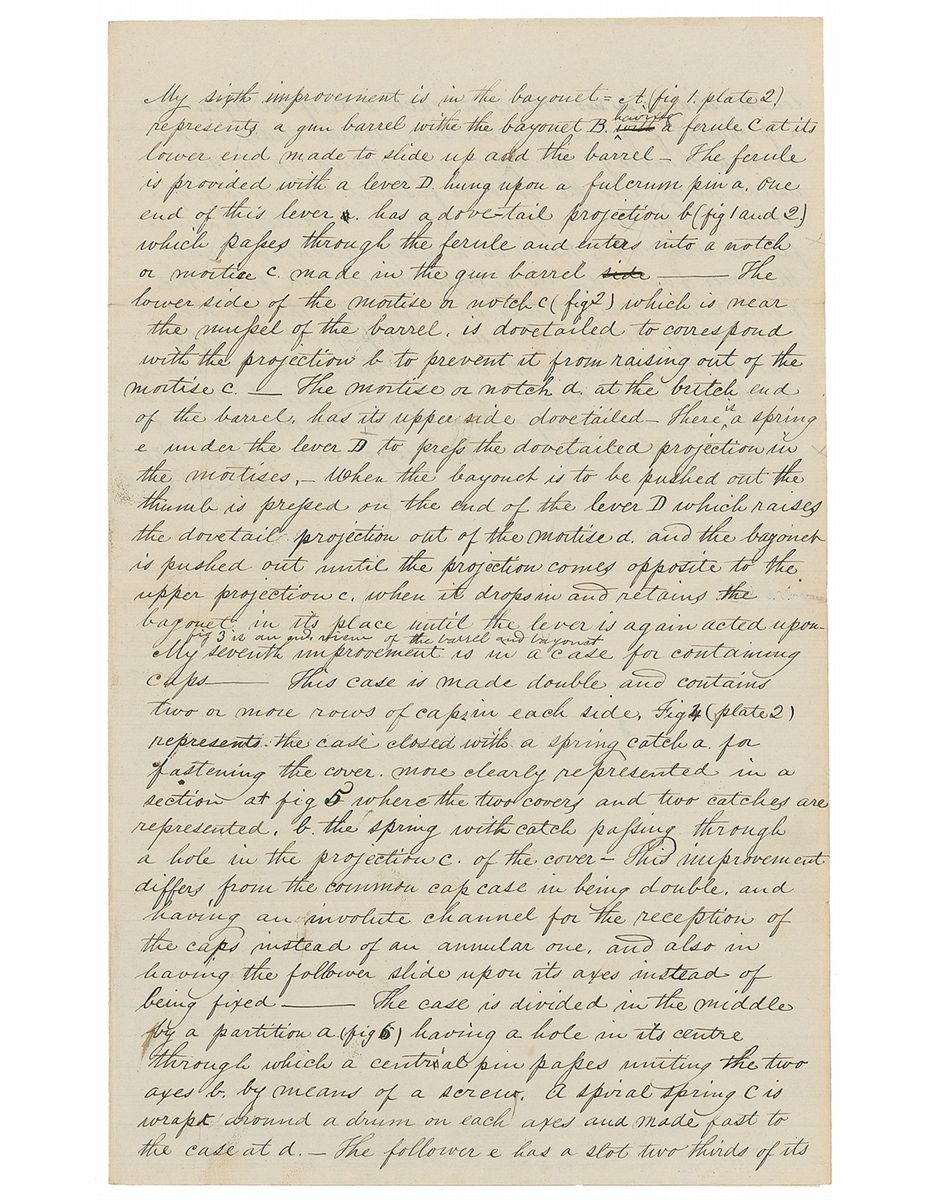 My sixth improvement is in the bayonet = A. (fig 1. plate 2)
represents a gun barrel withe the bayonet B. with having a ferule C at its
lower end made to slide up and the barrel – The ferule
is provided with a lever D. hung upon a fulcrum pin a. one
end of this lever . has a dove-tail projection b (fig 1 and 2)
which passes through the ferule and enters into a notch
or mortise c made in the gun barrel side — The
lower side of the mortise or notch c (fig 2) which is near
the mussel of the barrel. is dovetailed to correspond
with the projection b to prevent it from raising out of the
mortise c. — The mortise or notch d. at the britch end
of the barrel. has its upper side dovetailed – There is a spring
e under the lever D to press the dovetailed projection in
the mortises. – When the bayonet is to be pushed out the
thumb is pressed on the end of the lever D which raises
the dovetail projection out of the mortise d. and the bayonet
is pushed out until the projection comes opposite to the
upper projection c. when it drops in and retains the
bayonet in its place until the lever is again acted upon –
fig 3 is an end of the barrel and bayonet
My seventh improvement is in a case for containing
caps — This case is made double and contains
two or more rows of caps in each side. Fig 4 (plate 2)
represents the case closed with a spring catch a. for
fastening the cover. more clearly represented in a
section at fig 5 where the two covers and two catches are
represented. b. the spring with catch passing through
a hole in the projection c. of the cover – This improvement
differs from the common cap case in being double. and
having an involute channel for the reception of
the caps instead of an annular one. and also in
having the follower slide upon its axes instead of
being fixed — The case is divided in the middle
by a partition a (fig 6) having a hole in its centre
through which a central pin passes uniting the two
axes b. by means of a screw. A spiral spring C is
wrapt around a drum on each axes and made fast to
the case at d. – The follower e has a slot two thirds of its